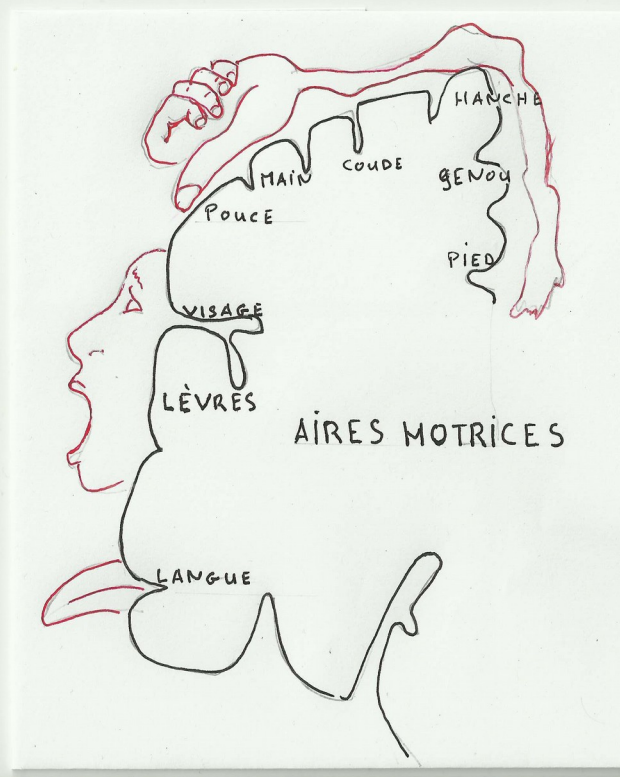 HANCHE
COUDE
MAIN
GENOU
POUCE
PIED
VISAGE
LÈVRES
AIRES MOTRICES
LANGUE